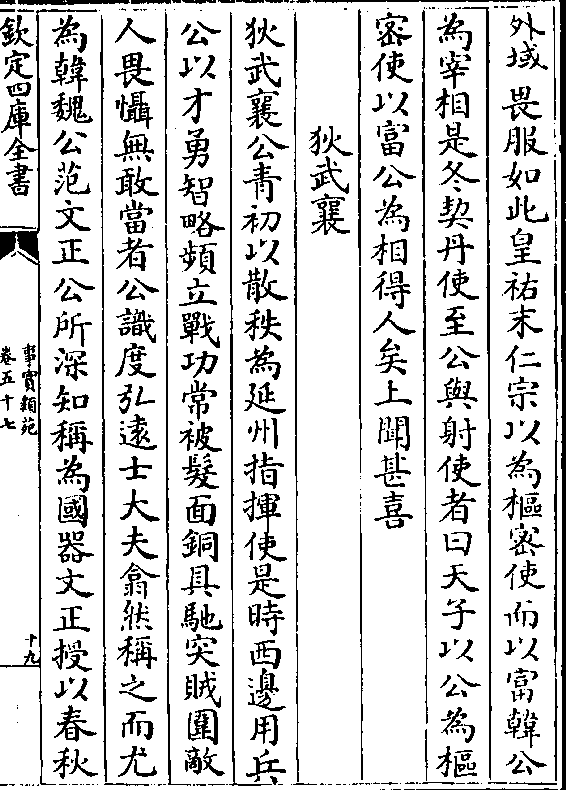 外域畏服如此皇祐末仁宗以為樞密使而以富韓公
為宰相是冬契丹使至公與射使者曰天子以公為樞
密使以富公為相得人矣上聞甚喜
狄武襄
狄武襄公青初以散秩為延州指揮使是時西邊用兵
公以才勇智略頻立戰功常被髮面銅具馳突賊圍敵
人畏懾無敢當者公識度弘遠士大夫翕然稱之而尤
為韓魏公范文正公所深知稱為國器文正授以春秋
欽定四庫全書
事實類苑
卷五十七
十九